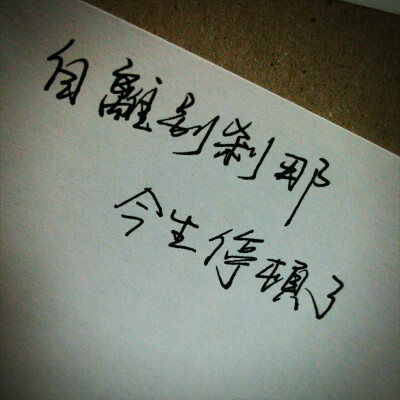 自離別刹那
今生停頓了